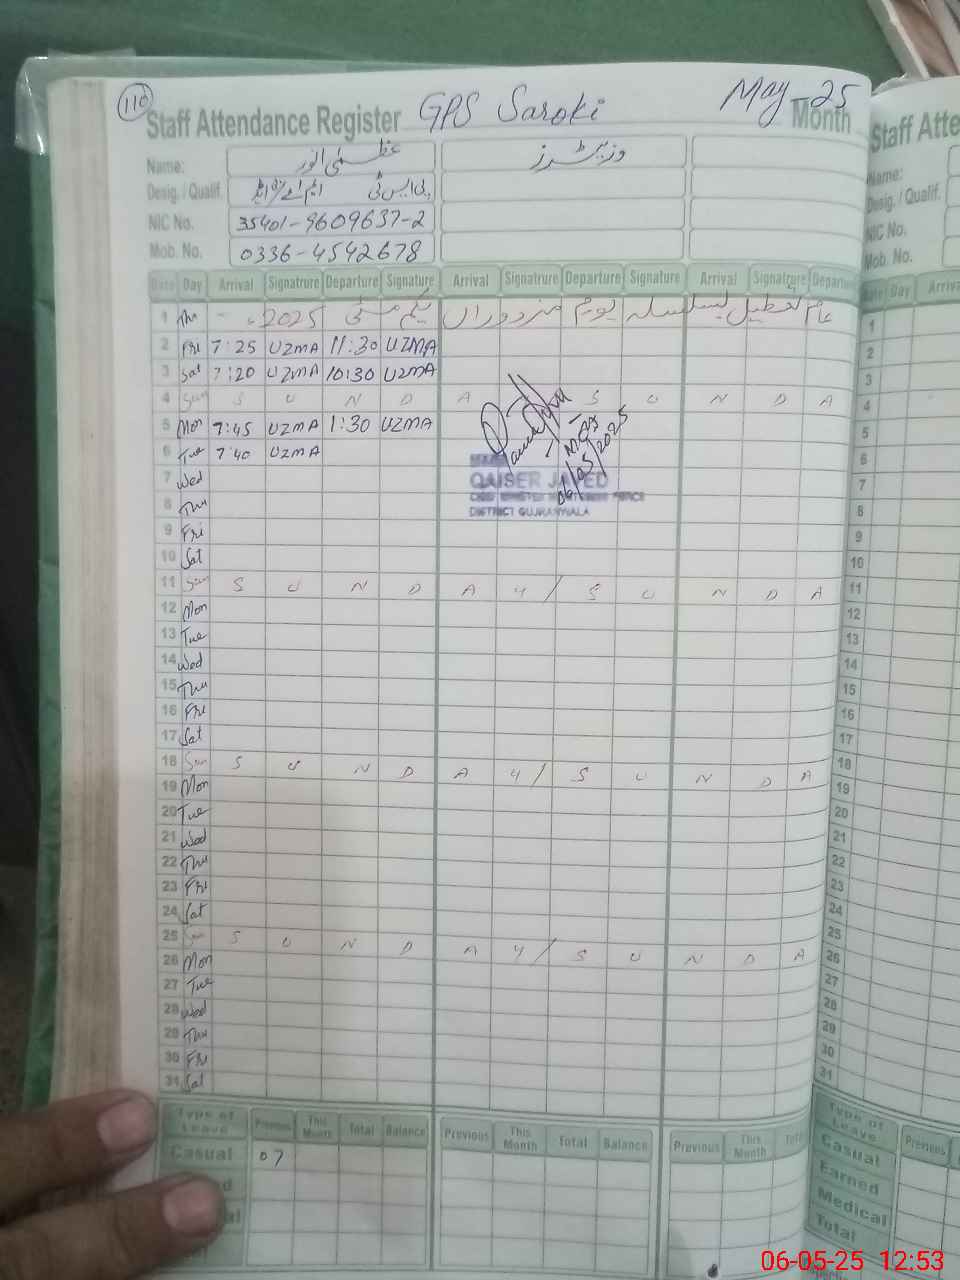 110
Staff Attendance Register GPS Saroki May 25 Month
Name: عظمیٰ انور وزیٹرز
Desig. / Qualif. پی ایس ٹی ایم اے
NIC No. 35401-9609637-2
Mob. No. 0336-4542678
Date Day Arrival Signatrure Departure Signature Arrival Signatrure Departure Signature Arrival Signatrure Departure
1 Thu عام تعطیل بسلسلہ یوم مزدوراں یکم مئی 2025
2 Fri 7:25 UZMA 11:30 UZMA
3 Sat 7:20 UZMA 10:30 UZMA
4 Sun S U N D A S U N D A
5 Mon 7:45 UZMA 1:30 UZMA
6 Tue 7:40 UZMA
7 Wed
8 Thu
9 Fri
10 Sat
11 Sun S U N D A Y / S U N D A
12 Mon
13 Tue
14 Wed
15 Thu
16 Fri
17 Sat
18 Sun S U N D A Y / S U N D A
19 Mon
20 Tue
21 Wed
22 Thu
23 Fri
24 Sat
25 Sun S U N D A Y / S U N D A
26 Mon
27 Tue
28 Wed
29 Thu
30 Fri
31 Sat
MEA
06/05/2025
QAISER JAVED
DISTRICT GUJRANWALA
Type of Leave Previous This Month Total Balance Previous This Month Total Balance Previous This Month Total
Casual 07
Staff Atte
Name:
Desig. / Qualif.
NIC No.
Mob. No.
Date Day Arriva
1
2
3
4
5
6
7
8
9
10
11
12
13
14
15
16
17
18
19
20
21
22
23
24
25
26
27
28
29
30
31
Type of Leave Previous
Casual
Earned
Medical
Total
06-05-25 12:53